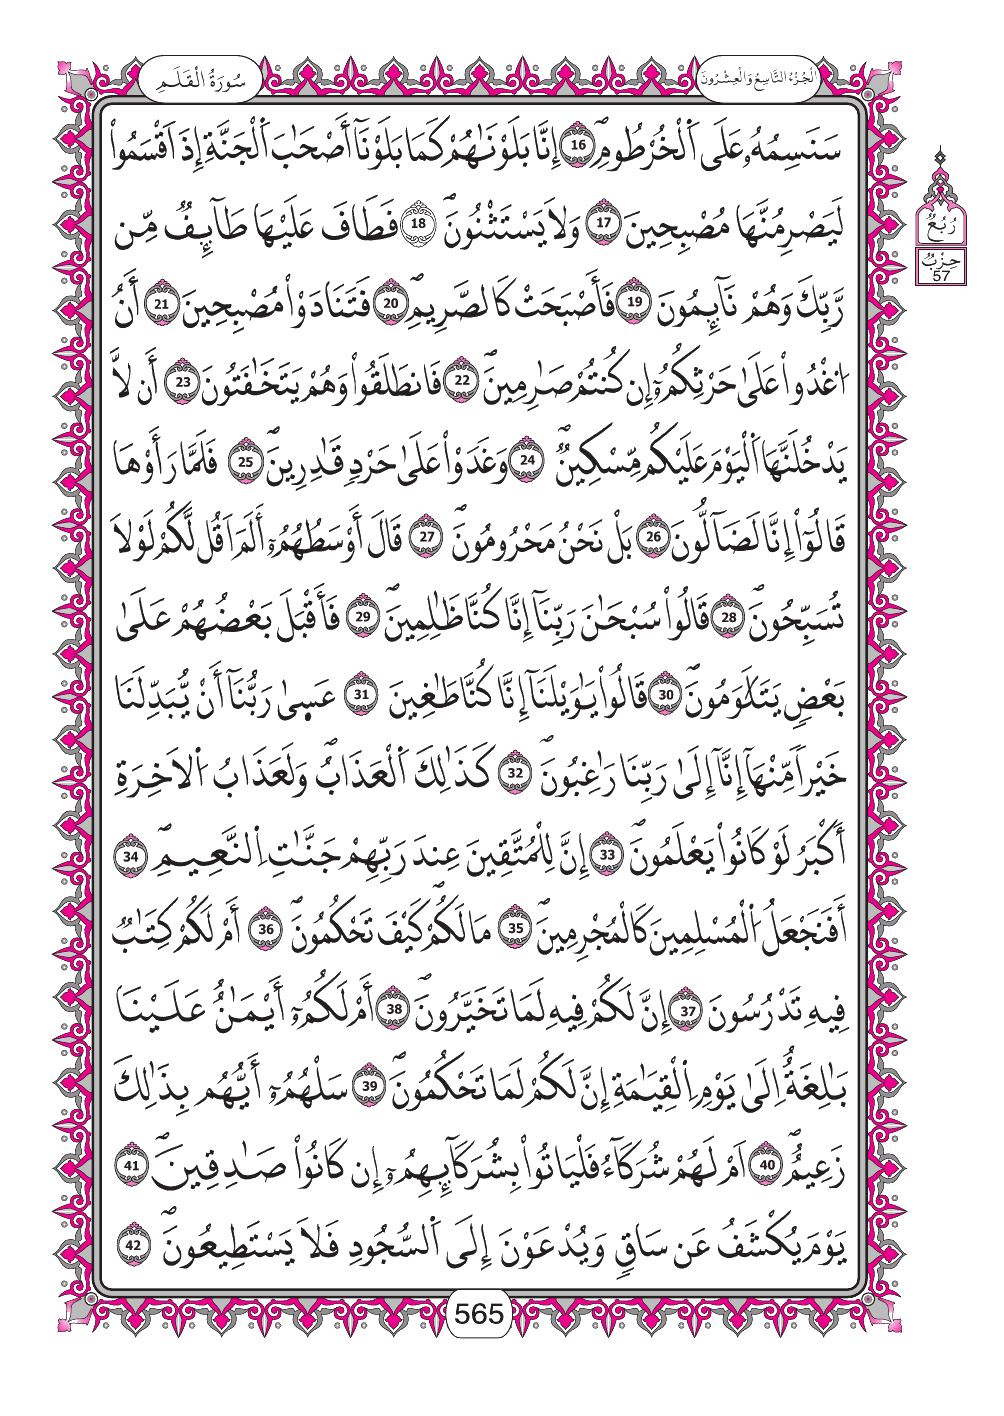 سُورَةُ الْقَلَمِ
الْجُزْءُ التَّاسِعُ وَالْعِشْرُونَ
سَنَسِمُهُۥ عَلَى اَ۬لْخُرْطُومِۖ 16 إِنَّا بَلَوْنَٰهُمْ كَمَا بَلَوْنَآ أَصْحَٰبَ اَ۬لْجَنَّةِ إِذَ اَقْسَمُواْ
لَيَصْرِمُنَّهَا مُصْبِحِينَ 17 وَلَا يَسْتَثْنُونَۖ 18 فَطَافَ عَلَيْهَا طَآئِفٞ مِّن
رَّبِّكَ وَهُمْ نَآئِمُونَ 19 فَأَصْبَحَتْ كَالصَّرِيمِۖ 20 فَتَنَادَوْاْ مُصْبِحِينَ 21 أَنُ
اُ۟غْدُواْ عَلَىٰ حَرْثِكُمُۥٓ إِن كُنتُمْ صَٰرِمِينَۖ 22 فَانطَلَقُواْ وَهُمْ يَتَخَٰفَتُونَ 23 أَن لَّا
يَدْخُلَنَّهَا اَ۬لْيَوْمَ عَلَيْكُم مِّسْكِينٞۖ 24 وَغَدَوْاْ عَلَىٰ حَرْدٖ قَٰدِرِينَۖ 25 فَلَمَّا رَأَوْهَا
قَالُوٓاْ إِنَّا لَضَآلُّونَ 26 بَلْ نَحْنُ مَحْرُومُونَۖ 27 قَالَ أَوْسَطُهُمُۥٓ أَلَمَ اَقُل لَّكُمْ لَوْلَا
تُسَبِّحُونَۖ 28 قَالُواْ سُبْحَٰنَ رَبِّنَآ إِنَّا كُنَّا ظَٰلِمِينَۖ 29 فَأَقْبَلَ بَعْضُهُمْ عَلَىٰ
بَعْضٖ يَتَلَٰوَمُونَۖ 30 قَالُواْ يَٰوَيْلَنَآ إِنَّا كُنَّا طَٰغِينَ 31 عَسىٰ رَبُّنَآ أَنْ يُّبَدِّلَنَا
خَيْراٗ مِّنْهَآ إِنَّآ إِلَىٰ رَبِّنَا رَٰغِبُونَۖ 32 كَذَٰلِكَ اَ۬لْعَذَابُۖ وَلَعَذَابُ اُ۬لَاخِرَةِ
أَكْبَرُ لَوْ كَانُواْ يَعْلَمُونَۖ 33 إِنَّ لِلْمُتَّقِينَ عِندَ رَبِّهِمْ جَنَّٰتِ اِ۬لنَّعِيمِۖ 34
أَفَنَجْعَلُ اُ۬لْمُسْلِمِينَ كَالْمُجْرِمِينَۖ 35 مَا لَكُمْ كَيْفَ تَحْكُمُونَۖ 36 أَمْ لَكُمْ كِتَٰبٞ
فِيهِ تَدْرُسُونَ 37 إِنَّ لَكُمْ فِيهِ لَمَا تَخَيَّرُونَۖ 38 أَمْ لَكُمُۥٓ أَيْمَٰنٌ عَلَيْنَا
بَٰلِغَةٌ اِلَىٰ يَوْمِ اِ۬لْقِيَٰمَةِ إِنَّ لَكُمْ لَمَا تَحْكُمُونَۖ 39 سَلْهُمُۥٓ أَيُّهُم بِذَٰلِكَ
زَعِيمٌۖ 40 اَمْ لَهُمْ شُرَكَآءُ فَلْيَاتُواْ بِشُرَكَآئِهِمُۥٓ إِن كَانُواْ صَٰدِقِينَۖ 41
يَوْمَ يُكْشَفُ عَن سَاقٖ وَيُدْعَوْنَ إِلَى اَ۬لسُّجُودِ فَلَا يَسْتَطِيعُونَۖ 42
رُبُعٌ
حِزْبٌ
57
565